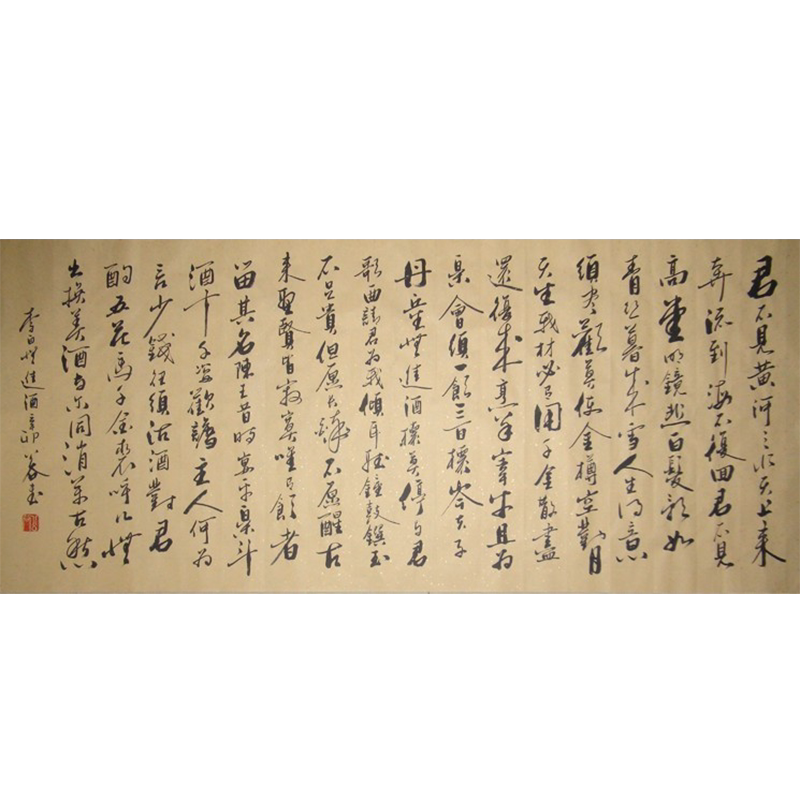 君不見黃河之水天上來
奔流到海不復回君不見
高堂明鏡悲白髮朝如
青絲暮成雪人生得意
須盡歡莫使金樽空對月
天生我材必有用千金散盡
還復來烹羊宰牛且為
樂會須一飲三百杯岑夫子
丹丘生進酒杯莫停與君
歌一曲請君為我傾耳聽鐘鼓饌玉
不足貴但愿長醉不愿醒古
來聖賢皆寂寞唯有飲者
留其名陳王昔時宴平樂斗
酒十千恣歡謔主人何為
言少錢徑須沽酒對君
酌五花馬千金裘呼兒將
出換美酒與爾同消萬古愁
李白將進酒辛卯